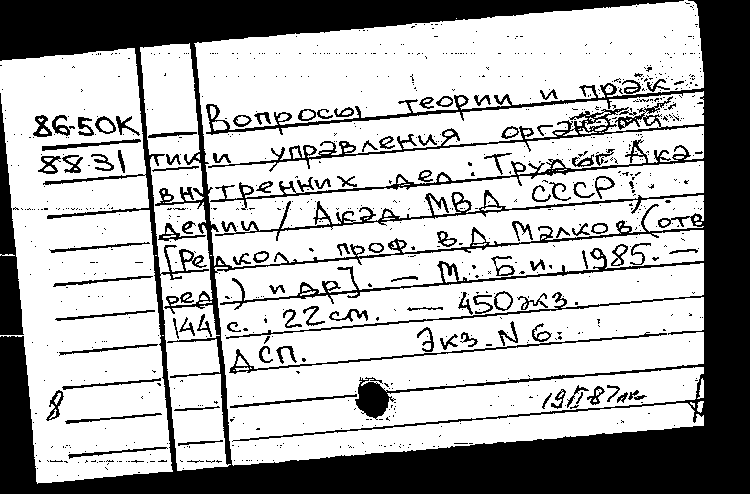 86-50К
8831
Вопросы теории и прак-
тики управления органами
внутренних дел : Труды Ака-
демии / Акад. МВД СССР ;
[Редкол. : проф. В.Д. Малков (отв
ред.) и др]. — М. : Б.и., 1985. —
144 с. ; 22 см. — 450 экз.
ДСП. Экз. N 6.
8